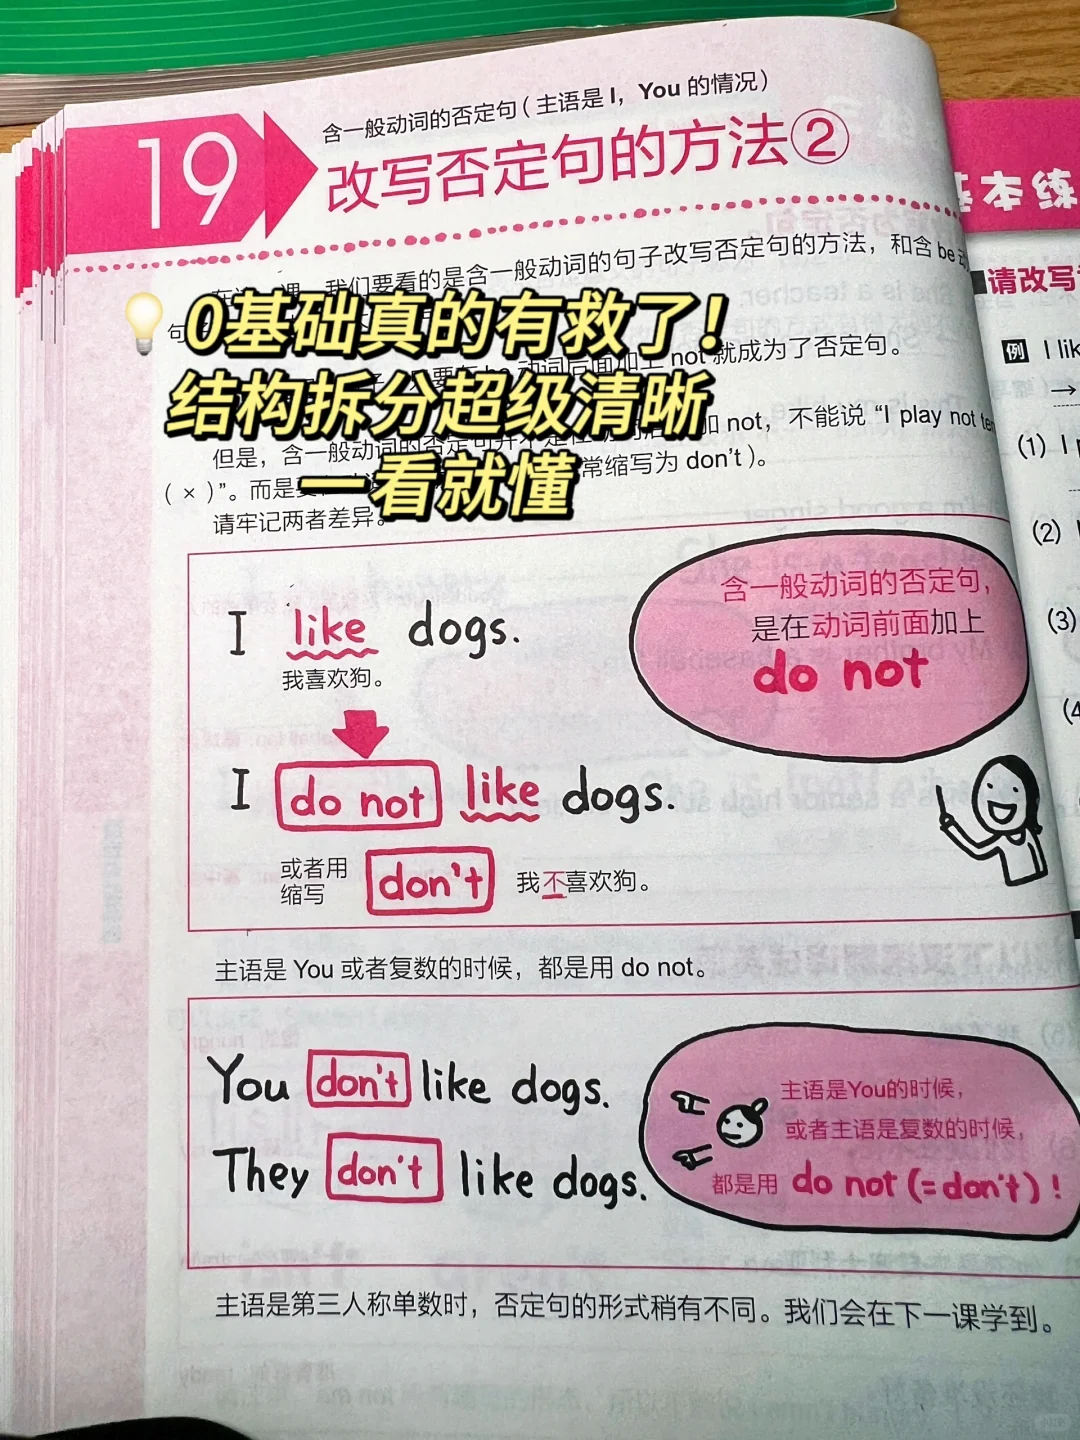 19
含一般动词的否定句（主语是 I，You 的情况）
改写否定句的方法②
基本练
我们要看的是含一般动词的句子改写否定句的方法，和含 be
请改写
💡 0基础真的有救了！
not 就成为了否定句。
例 I lik
结构拆分超级清晰
→
但是，含一般动词的否定句并 加 not，不能说 “I play not te
(1) I
一看就懂
（ × ）”。而是 常缩写为 don’t ）。
请牢记两者差异。
(2)
I like dogs.
我喜欢狗。
含一般动词的否定句，
是在动词前面加上
do not
(3)
(4
I do not like dogs.
或者用
缩写
don't 我不喜欢狗。
主语是 You 或者复数的时候，都是用 do not。
You don't like dogs.
They don't like dogs.
主语是You的时候，
或者主语是复数的时候，
都是用 do not (=don't)！
主语是第三人称单数时，否定句的形式稍有不同。我们会在下一课学到。